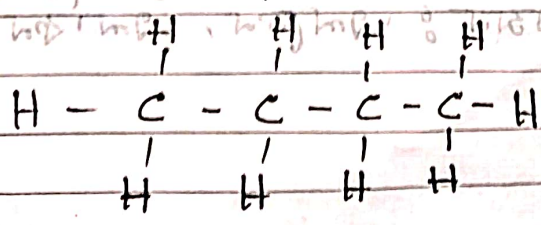 H H H H
H - C - C - C - C - H
H H H H